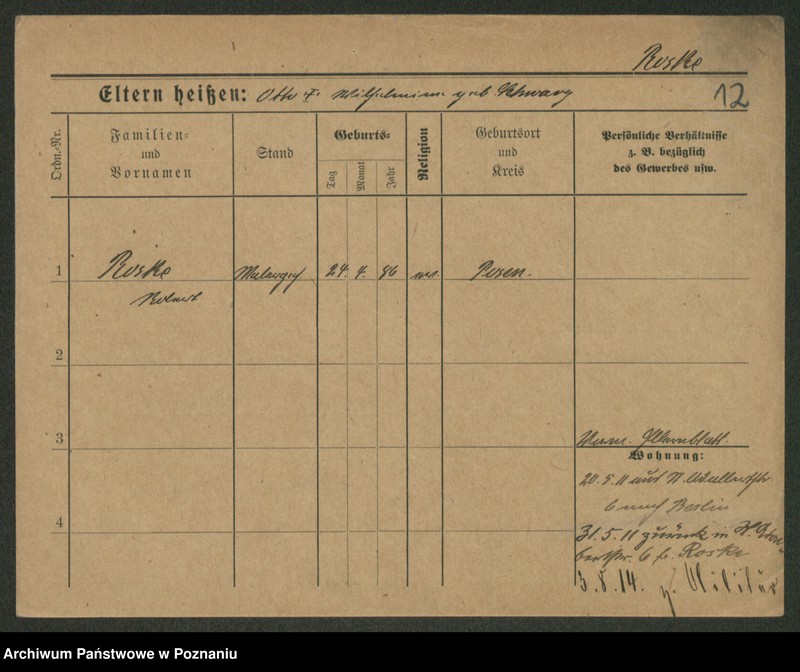 Roske
Eltern heißen: Otto u. Wilhelmine geb Schwarz
12
Ordn.-Nr.
Familien-
und
Vornamen
Stand
Geburts-
Tag
Monat
Jahr
Religion
Geburtsort
und
Kreis
Persönliche Verhältnisse
z. B. bezüglich
des Gewerbes usw.
1 Roske 24. 4. 86 Posen.
Robert
2
3
Elternblatt.
Wohnung:
20. 5. 11
6 nach Berlin
4
31. 5. 11 zurück in
6 b. Roske
3. 8. 14. z. Militär
Archiwum Państwowe w Poznaniu